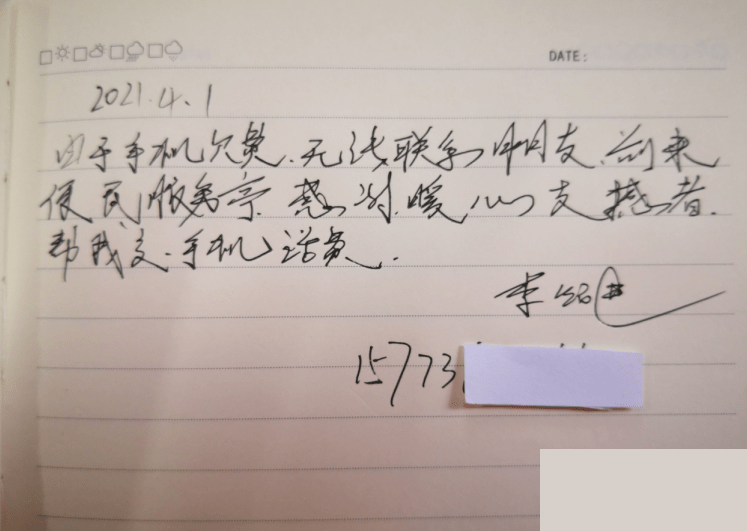 DATE:
2021.4.1
由于手机欠费.无法联系朋友.前来
便民服务亭.感谢.暖心支援者.
帮我交.手机话费.
李
15773